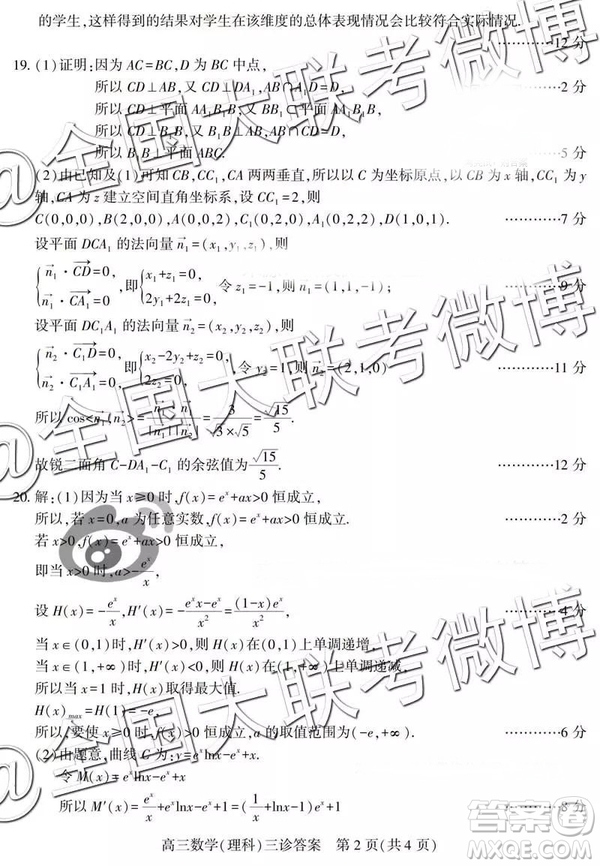 的学生,这样得到的结果对学生在该维度的总体表现情况会比较符合实际情况.
…………12 分
19. (1)证明:因为 AC=BC,D 为 BC 中点,
所以 CD⊥AB,又 CD⊥DA₁,AB∩A₁D=D, …………2 分
所以 CD⊥平面 AA₁B₁B,又 B₁B⊂平面 AA₁B₁B,
所以 CD⊥B₁B,又 B₁B⊥AB,AB∩CD=D,
所以 B₁B⊥平面 ABC. …………5 分
(2)由已知及(1)可知 CB,CC₁,CA 两两垂直,所以以 C 为坐标原点,以 CB 为 x 轴,CC₁ 为 y
轴,CA 为 z 建立空间直角坐标系,设 CC₁=2,则
C(0,0,0),B(2,0,0),A(0,0,2),C₁(0,2,0),A₁(0,2,2),D(1,0,1). …………7 分
设平面 DCA₁ 的法向量 n₁=(x₁,y₁,z₁),则
{n₁·CD=0, n₁·CA₁=0, 即{x₁+z₁=0, 2y₁+2z₁=0, 令 z₁=-1,则 n₁=(1,1,-1); …………9 分
设平面 DC₁A₁ 的法向量 n₂=(x₂,y₂,z₂),则
{n₂·C₁D=0, n₂·C₁A₁=0, 即{x₂-2y₂+z₂=0, 2z₂=0, 令 y₂=1,则 n₂=(2,1,0) …………11 分
所以 cos<n₁,n₂>= = 3/(√3×√5) = √15/5.
故锐二面角 C-DA₁-C₁ 的余弦值为 √15/5. …………12 分
20. 解:(1)因为当 x≥0 时,f(x)=eˣ+ax>0 恒成立,
所以,若 x=0,a 为任意实数,f(x)=eˣ+ax>0 恒成立. …………2 分
若 x>0,f(x)=eˣ+ax>0 恒成立,
即当 x>0 时,a>-eˣ/x,
设 H(x)=-eˣ/x, =(1-x)eˣ/x², …………4 分
当 x∈(0,1)时,H′(x)>0,则 H(x)在(0,1)上单调递增,
当 x∈(1,+∞)时,H′(x)<0,则 H(x)在(1,+∞)上单调递减,
所以当 x=1 时,H(x)取得最大值.
H(x)max
所以,要使 x≥0 时,f(x)>0 恒成立,a 的取值范围为(-e,+∞). …………6 分
(2)由题意,曲线 C 为:y=eˣlnx-eˣ+x.
令 M(x)=eˣlnx-eˣ+x,
所以 M′(x)=eˣ/x+eˣlnx-eˣ+1=(1/x+lnx-1)eˣ+1 …………8 分
高三数学(理科)三诊答案 第 2 页(共 4 页)
@全国大联考微博
@全国大联考微博
@全国大联考微博